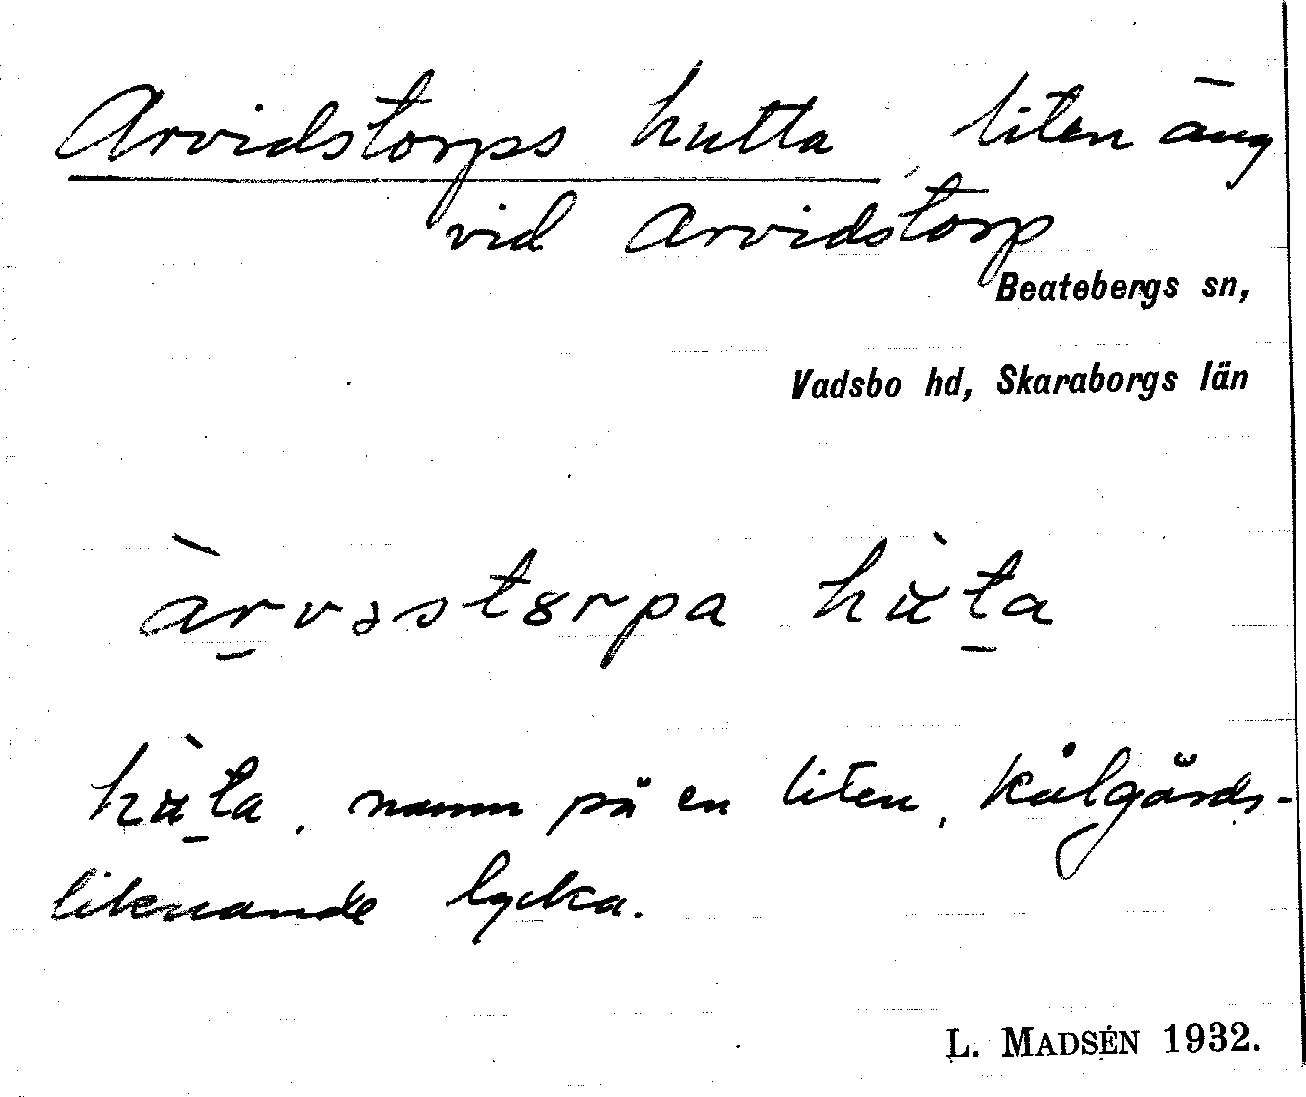 Arvidstorps hutta, liten äng
vid Arvidstorp
Beatebergs sn,
Vadsbo hd, Skaraborgs län
àr̠vəstɵrpa hùt̠a
hùt̠a, namn på en liten, kålgårds-
liknande lycka.
L. MADSÉN 1932.